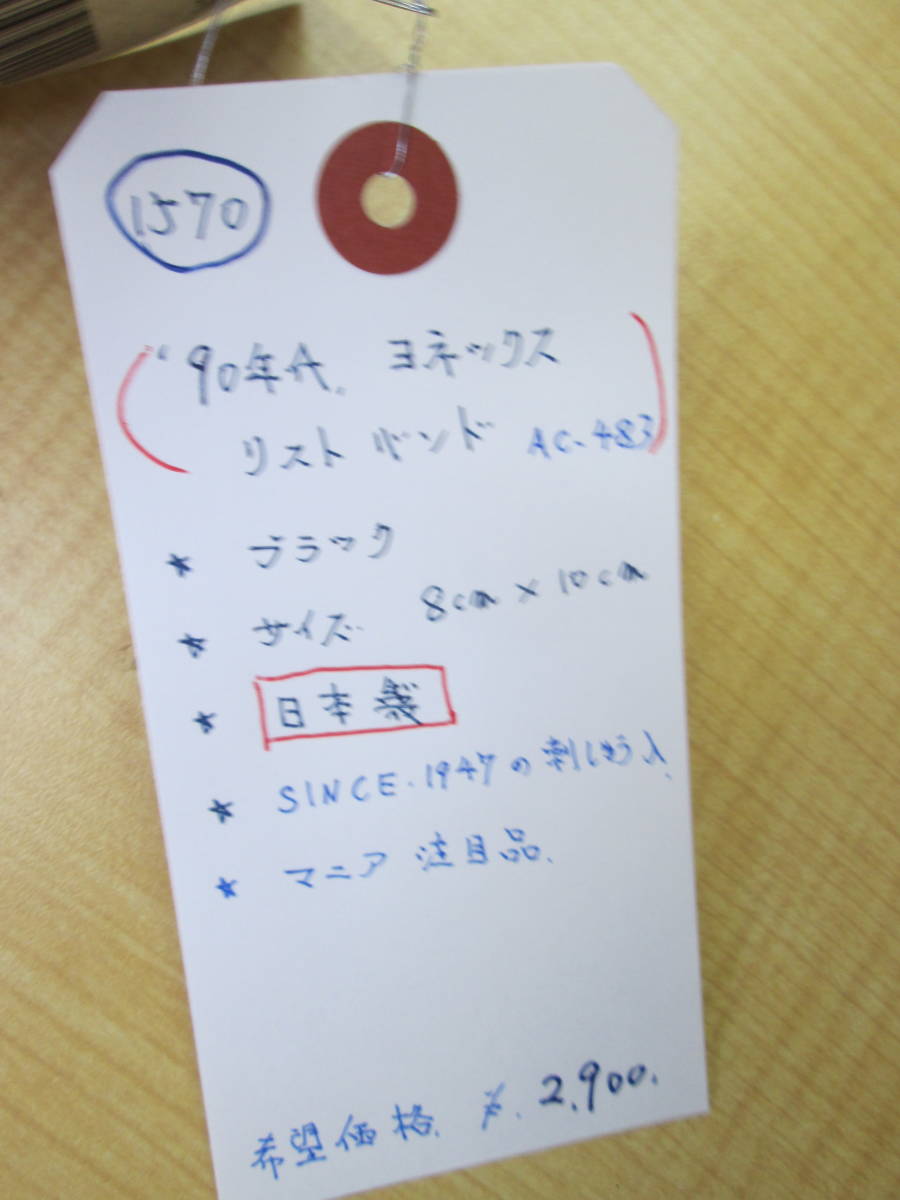 1570
"90年代. ヨネックス
リストバンド AC-483
★ ブラック
★ サイズ 8cm×10cm
★ 日本製
★ SINCE.1947の刺しゅう入
★ マニア注目品.
希望価格. ¥.2,900.